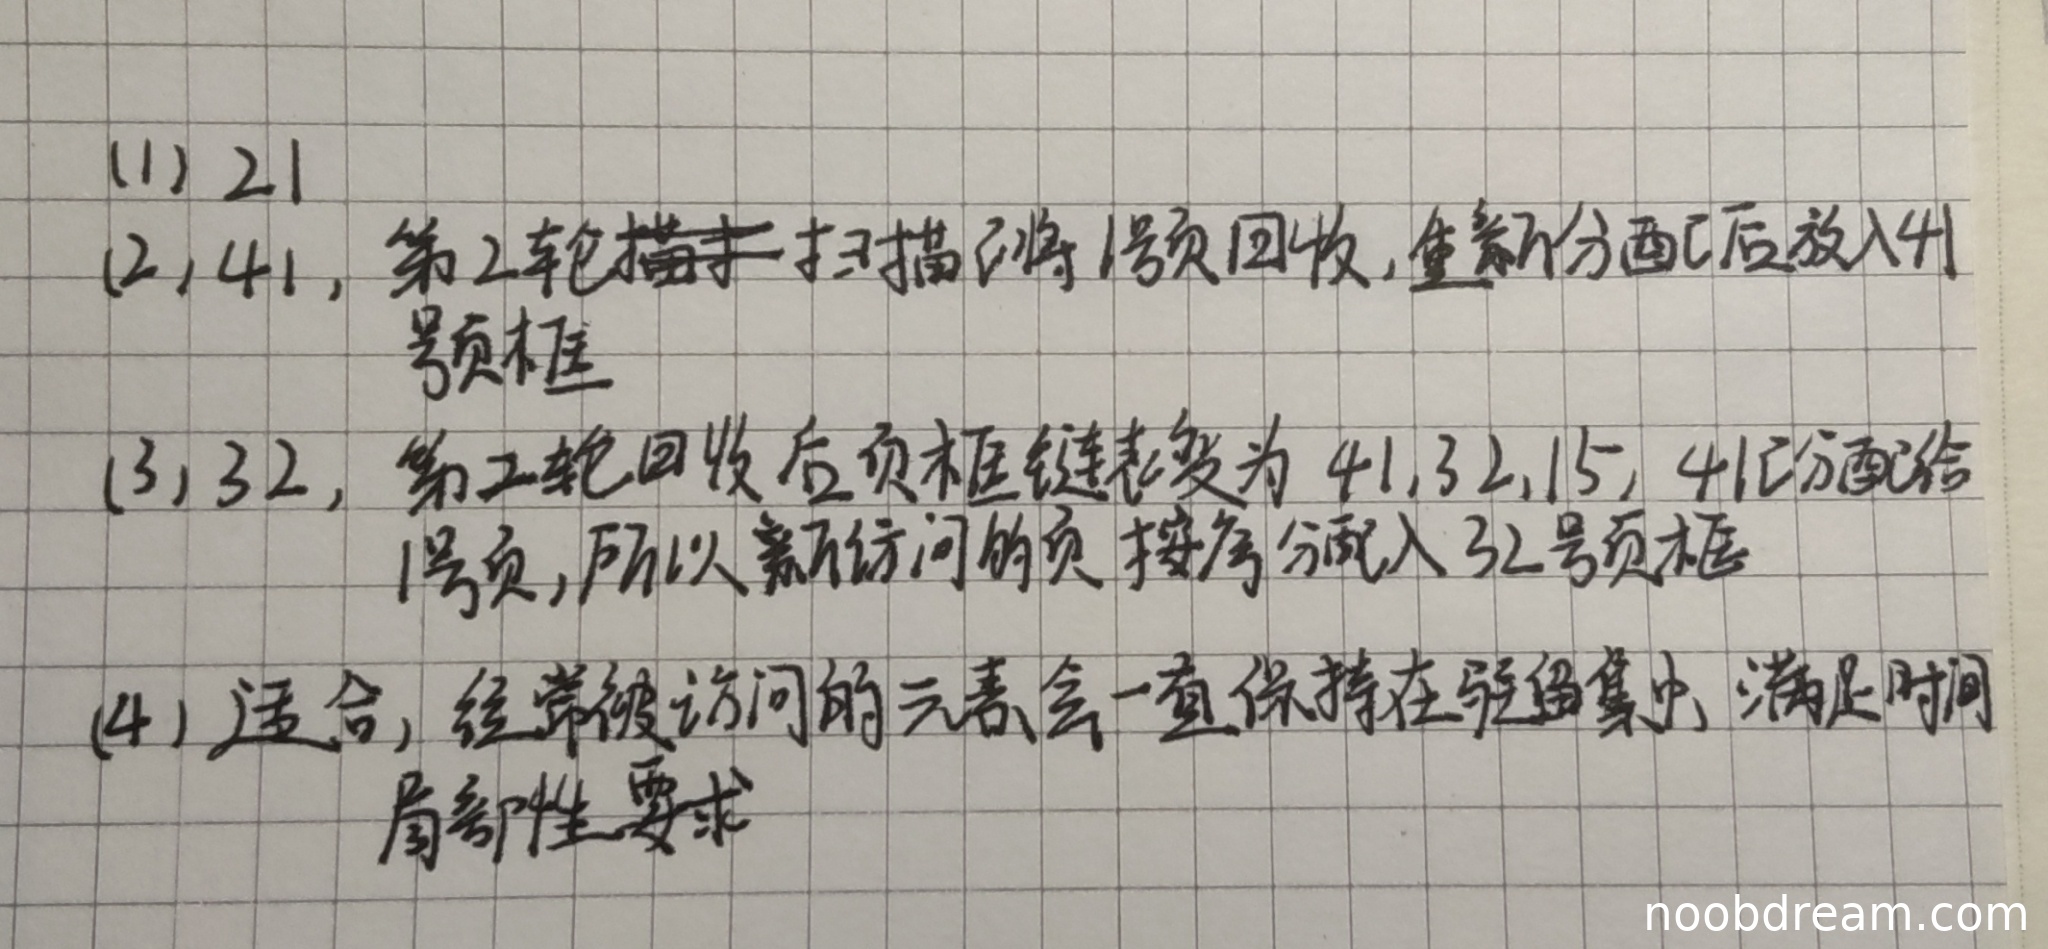 (1) 21
(2) 41, 第2轮扫描已将1号页回收,重新分配后放入41
号页框
(3) 32, 第二轮回收后页框链表变为 41,32,15, 41已分配给
1号页,所以新访问的页按序分配入32号页框
(4) 适合,经常被访问的元素会一直保持在驻留集中、满足时间
局部性要求
noobdream.com